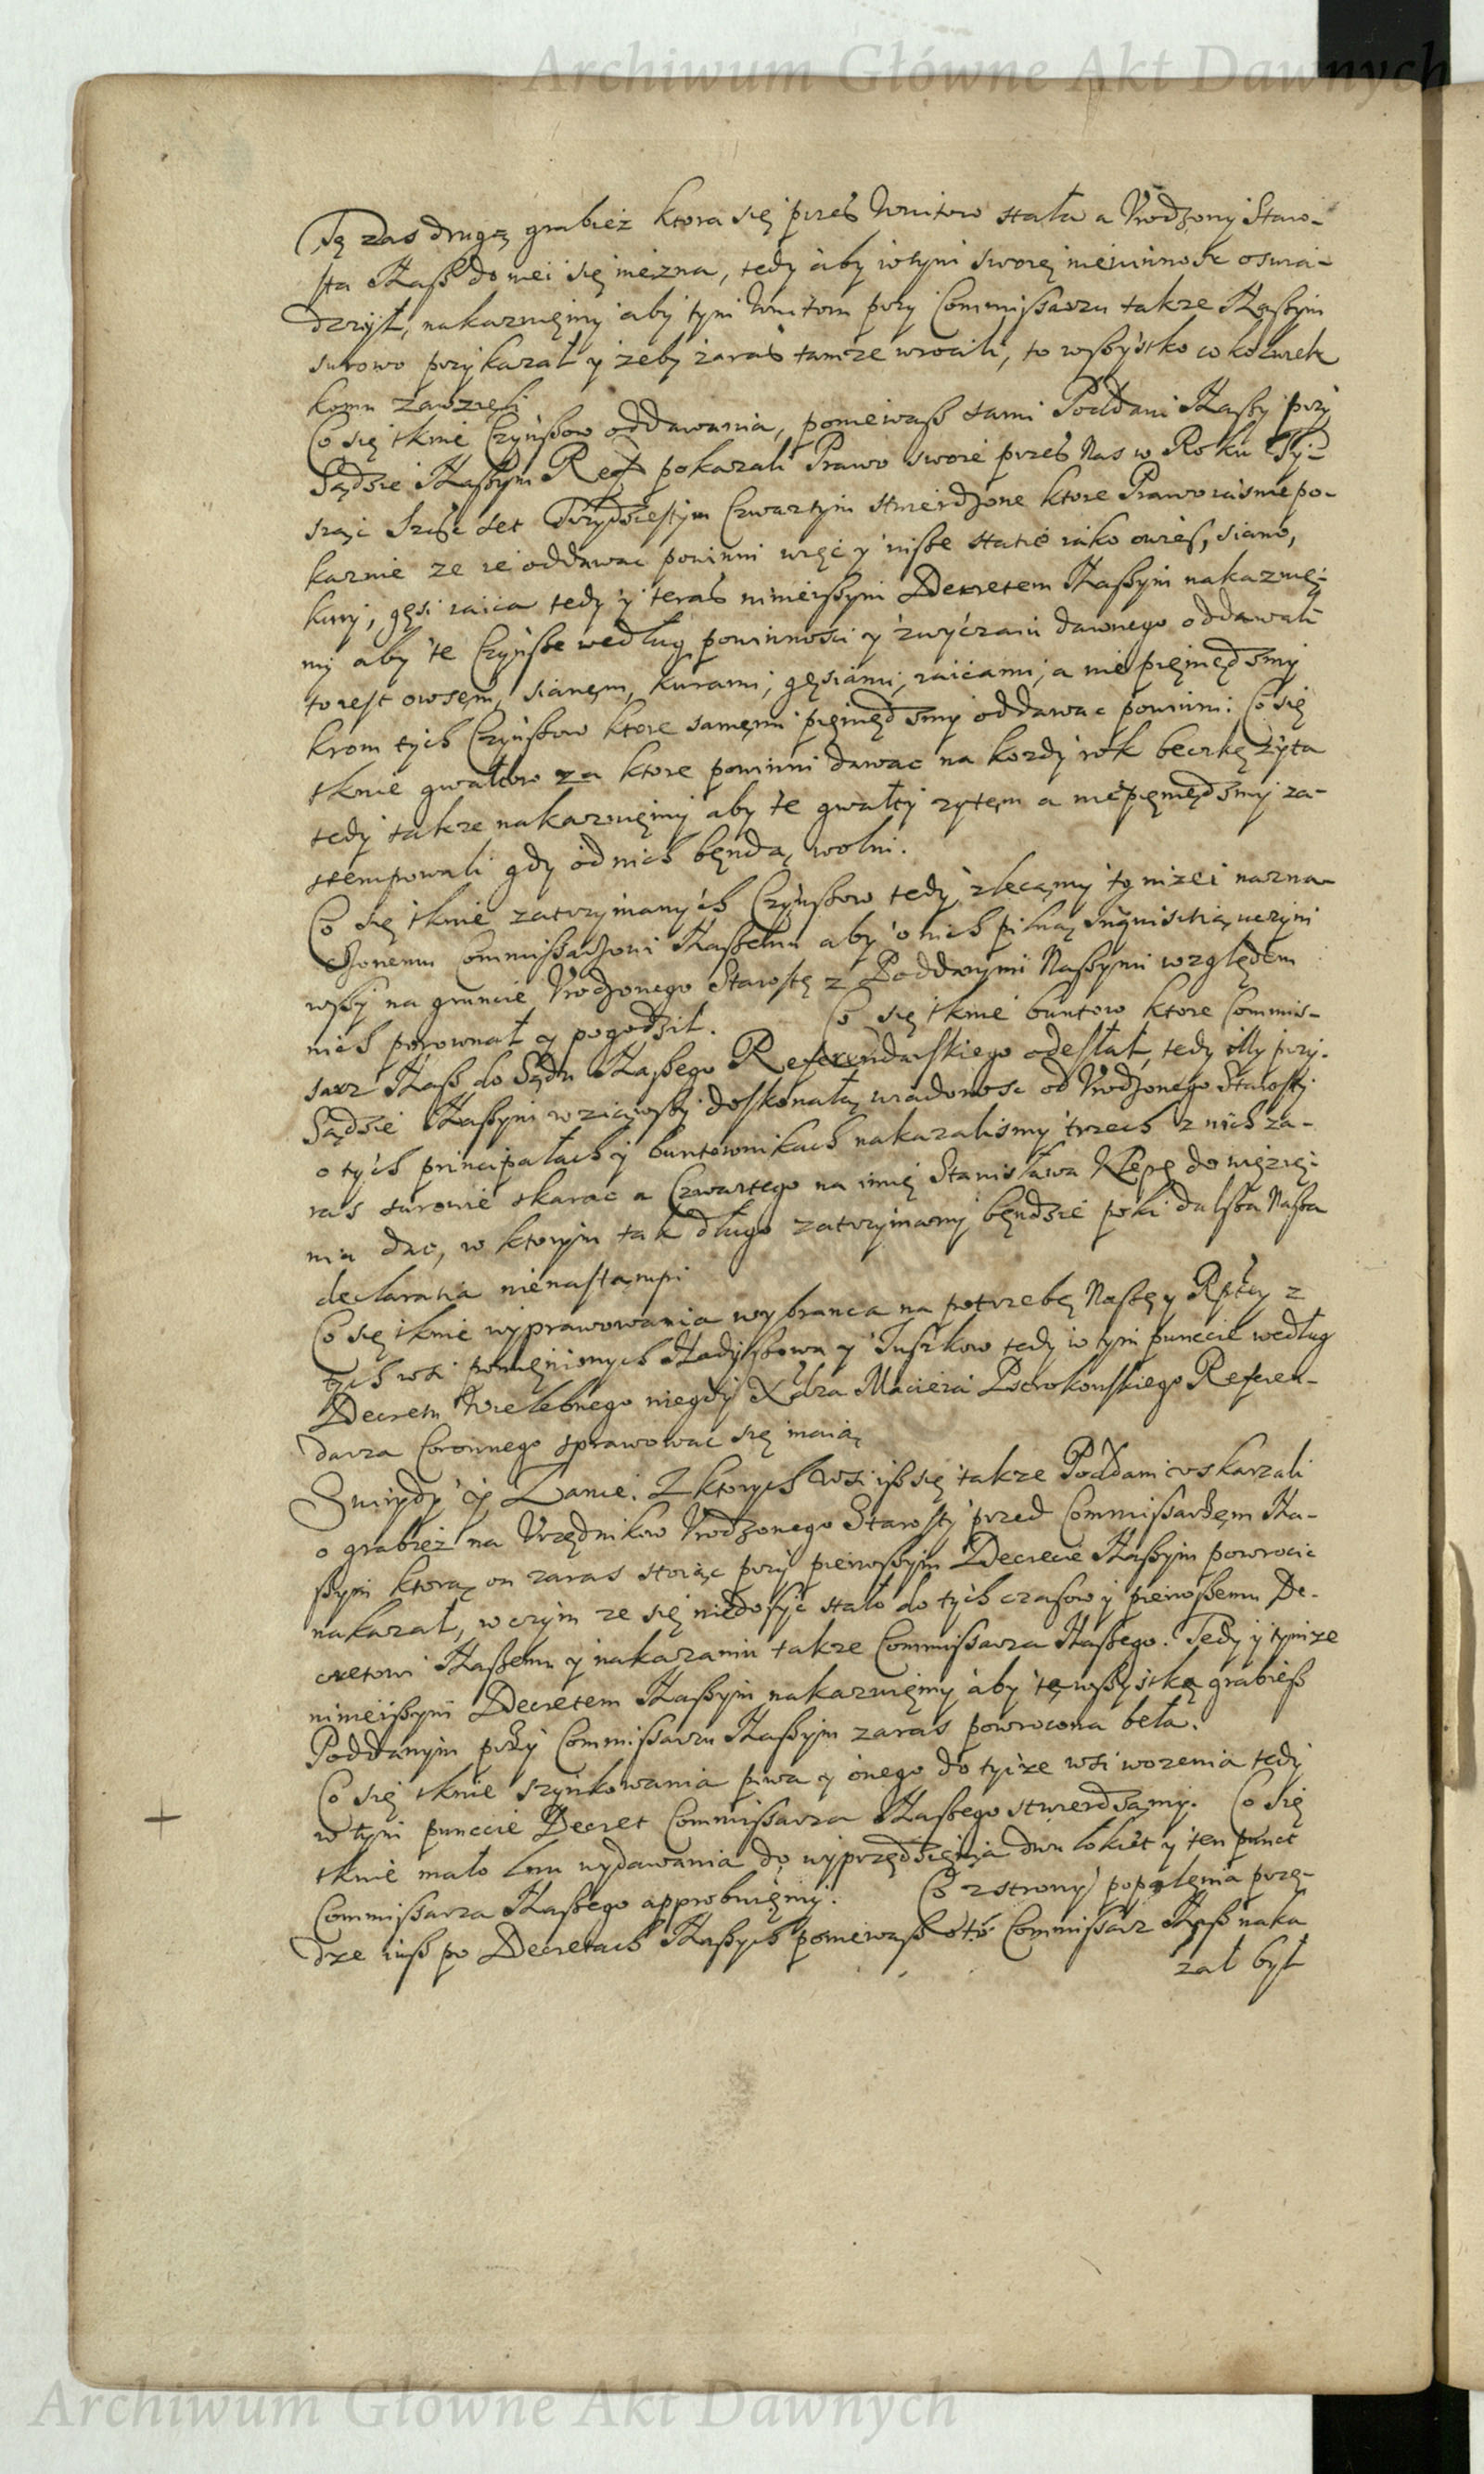 Archiwum Główne Akt Dawnych
Tę zas drugą grabież ktora się przes Woitow stała a Vrodzony Staro-
sta Nasz do niei się niezna, tedy aby wtym swoię niewinnosc oswia-
dczył, nakazuięmy aby tym Woitom przy Commissarzu takze Naszym
surowo przykazał y żeby zaras tamze wrocili, to wszystko cokolwiek
komu zawzięli
Co się tknie Czynszow oddawania, poniewasz sami Poddani Naszy przy
Sądzie Naszym Reſ pokazali Prawo swoie przes Nas w Roku Ty-
siąc Szesc set Trzydziestym Czwartym stwierdzone ktore Prawo iasnie po-
kazuie ze ie oddawac powinni więc y insze statio iako owies, siano,
kury, gęsi iaica tedy y teras ninieiszym Decretem Naszym nakazuię-
my aby te Czynsze według powinnosci y zwyczaiu dawnego oddawali
to iest owsęm, sianęm, kurami, gęsiami, iaicami, a nie pięniędzmy
krom tych Czynszow ktore samęmi pięniędzmy oddawac powinni. Co się
tknie gwałtow za ktore powinni dawac na kozdy rok beczkę zyta
tedy takze nakazuięmy aby te gwałty zytęm a nie pięniędzmy za-
stempowali gdy od nich bęndą wolni.
Co się tknie zatrzymanych Czynszow tedy zlecamy to nizei nazna-
czonemu Commissarzowi Naszemu aby o nich pilną Inquisitią uczyni
wszy na gruncie Vrodzonego Starostę z Poddanymi Naszymi względem
nich porownał y pogodził. Co się tknie buntow ktore Commis-
sarz Nasz do Sądu Naszego Referendarskiego odesłał, tedy iszy przy
Sądzie Naszym wziąwszy doskonałą wiadomosc od Vrodzonego Starosty
o tych principałach y buntownikach nakazalismy trzech z nich za-
ras surowie skarac a Czwartego na imię Stanisława Klepę do więzię-
nia dac, w ktorym tak długo zatrzymany bęndzie poki dalsza Nasza
declaratia nienastąmpi
Co się tknie wyprawowania wybranca na potrzebę Naszę y Rptey z
tych wsi pomięnionych Kadyszowa y Juszkow tedy w tym puncie według
Decretu Wielebnego niegdy Xdza Macieia Pstrokonskiego Referen-
darza Coronnego sprawowac się maią
Swirydy y Łanie. Z ktorych wsi isz się takze Poddani uskarzali
o grabiez na Vrzędnikow Vrodzonego Starosty przed Commissarzęm Na-
szym ktorą on zaras stoiąc przy pierwszym Decrecie Naszym powrocic
nakazał, w czym ze się niedosyc stało do tych czasow y pierwszemu De-
cretowi Naszemu y nakazaniu takze Commissarza Naszego. Tedy y tymze
ninieiszym Decretem Naszym nakazuięmy aby tę wszystkę grabiesz
Poddanym przy Commissarzu Naszym zaras powrocona beła.
Co się tknie szynkowania piwa y onego do tyize wsi wozenia tedy
w tym puncie Decret Commissarza Naszego stwierdzamy. Co się
tknie mało lnu wydawania do wyprzędzięnia dwu łokiet y ten punct
Commissarza Naszego approbuięmy. Co z strony popalęnia przę-
dze iusz po Decretach Naszych poniewasz o to Commissarz Nasz naka
zał był
Archiwum Główne Akt Dawnych